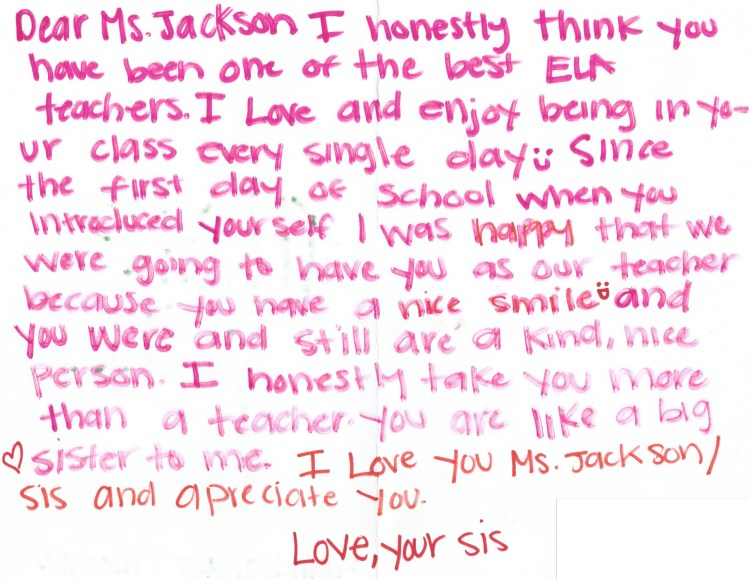 Dear Ms. Jackson I honestly think you
have been one of the best ELA
teachers. I Love and enjoy being in yo-
ur class every single day Since
the first day of school when you
introduced yourself I was happy that we
were going to have you as our teacher
because you have a nice smile and
you were and still are a kind, nice
person. I honestly take you more
than a teacher. You are like a big
sister to me. I Love you Ms. Jackson/
sis and apreciate you.
Love, your sis